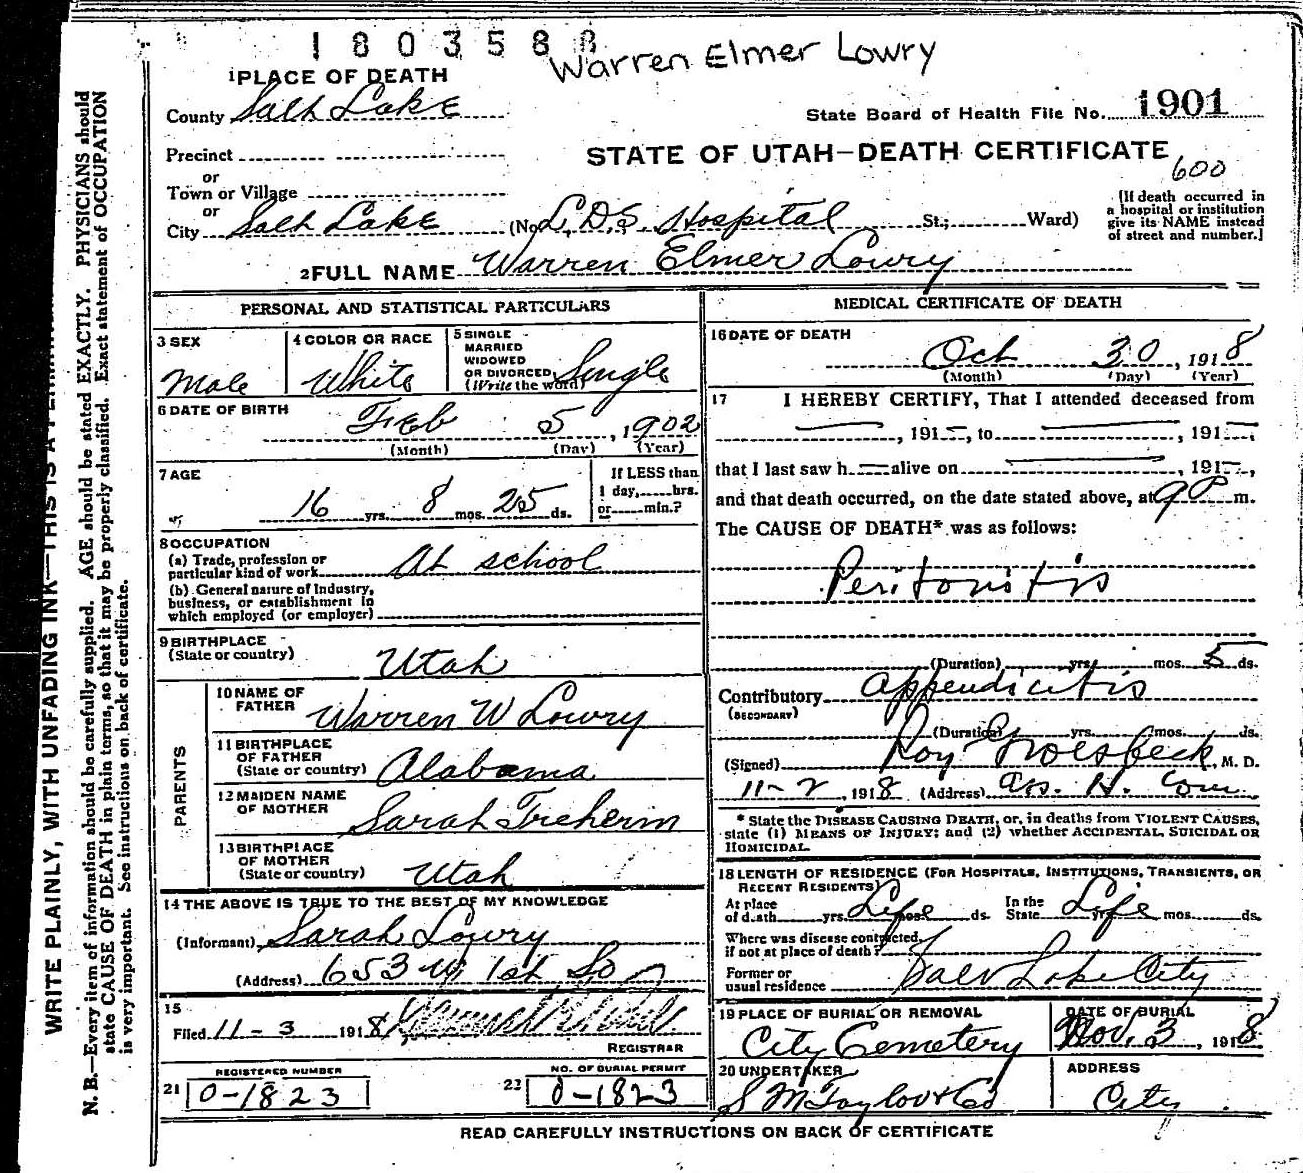 1803588
Warren Elmer Lowry
1 PLACE OF DEATH
County Salt Lake
State Board of Health File No. 1901
Precinct
or
Town or Village
or
City Salt Lake (No. L.D.S. Hospital St.; Ward)
STATE OF UTAH—DEATH CERTIFICATE
600
[If death occurred in
a hospital or institution
give its NAME instead
of street and number.]
2 FULL NAME Warren Elmer Lowry
PERSONAL AND STATISTICAL PARTICULARS
3 SEX
Male
4 COLOR OR RACE
White
5 SINGLE
MARRIED
WIDOWED
OR DIVORCED
(Write the word)
Single
6 DATE OF BIRTH
Feb 5, 1902
(Month) (Day) (Year)
7 AGE
16 yrs. 8 mos. 25 ds.
If LESS than
1 day, hrs.
or min.?
8 OCCUPATION
(a) Trade, profession or
particular kind of work At school
(b) General nature of Industry,
business, or establishment in
which employed (or employer)
9 BIRTHPLACE
(State or country) Utah
PARENTS
10 NAME OF
FATHER Warren W Lowry
11 BIRTHPLACE
OF FATHER
(State or country) Alabama
12 MAIDEN NAME
OF MOTHER Sarah Treherin
13 BIRTHPLACE
OF MOTHER
(State or country) Utah
14 THE ABOVE IS TRUE TO THE BEST OF MY KNOWLEDGE
(Informant) Sarah Lowry
(Address) 653 W 1st So
15
Filed 11-3 1918
REGISTRAR
REGISTERED NUMBER
21 0-1823
NO. OF BURIAL PERMIT
22 0-1823
MEDICAL CERTIFICATE OF DEATH
16 DATE OF DEATH
Oct 30, 1918
(Month) (Day) (Year)
17 I HEREBY CERTIFY, That I attended deceased from
, 191 , to , 191
that I last saw h alive on , 191 ,
and that death occurred, on the date stated above, at 9 P m.
The CAUSE OF DEATH* was as follows:
Peritonitis
(Duration) yrs. mos. 5 ds.
Contributory Appendicitis
(SECONDARY)
(Duration) yrs. mos. ds.
(Signed) Roy Groesbeck, M. D.
11-2, 1918 (Address) Ass. H. Com
* State the DISEASE CAUSING DEATH, or, in deaths from VIOLENT CAUSES,
state (1) MEANS OF INJURY; and (2) whether ACCIDENTAL, SUICIDAL OR
HOMICIDAL.
18 LENGTH OF RESIDENCE (FOR HOSPITALS, INSTITUTIONS, TRANSIENTS, OR
RECENT RESIDENTS)
At place
of death yrs. Life mos. ds. In the
State Life yrs. mos. ds.
Where was disease contracted,
if not at place of death?
Former or
usual residence Salt Lake City
19 PLACE OF BURIAL OR REMOVAL
City Cemetery
DATE OF BURIAL
Nov. 3, 1918
20 UNDERTAKER
S M Taylor & Co
ADDRESS
City
READ CAREFULLY INSTRUCTIONS ON BACK OF CERTIFICATE
WRITE PLAINLY, WITH UNFADING INK—THIS IS A
N. B.—Every item of information should be carefully supplied. AGE should be stated EXACTLY. PHYSICIANS should
state CAUSE OF DEATH in plain terms, so that it may be properly classified. Exact statement of OCCUPATION
is very important. See instructions on back of certificate.